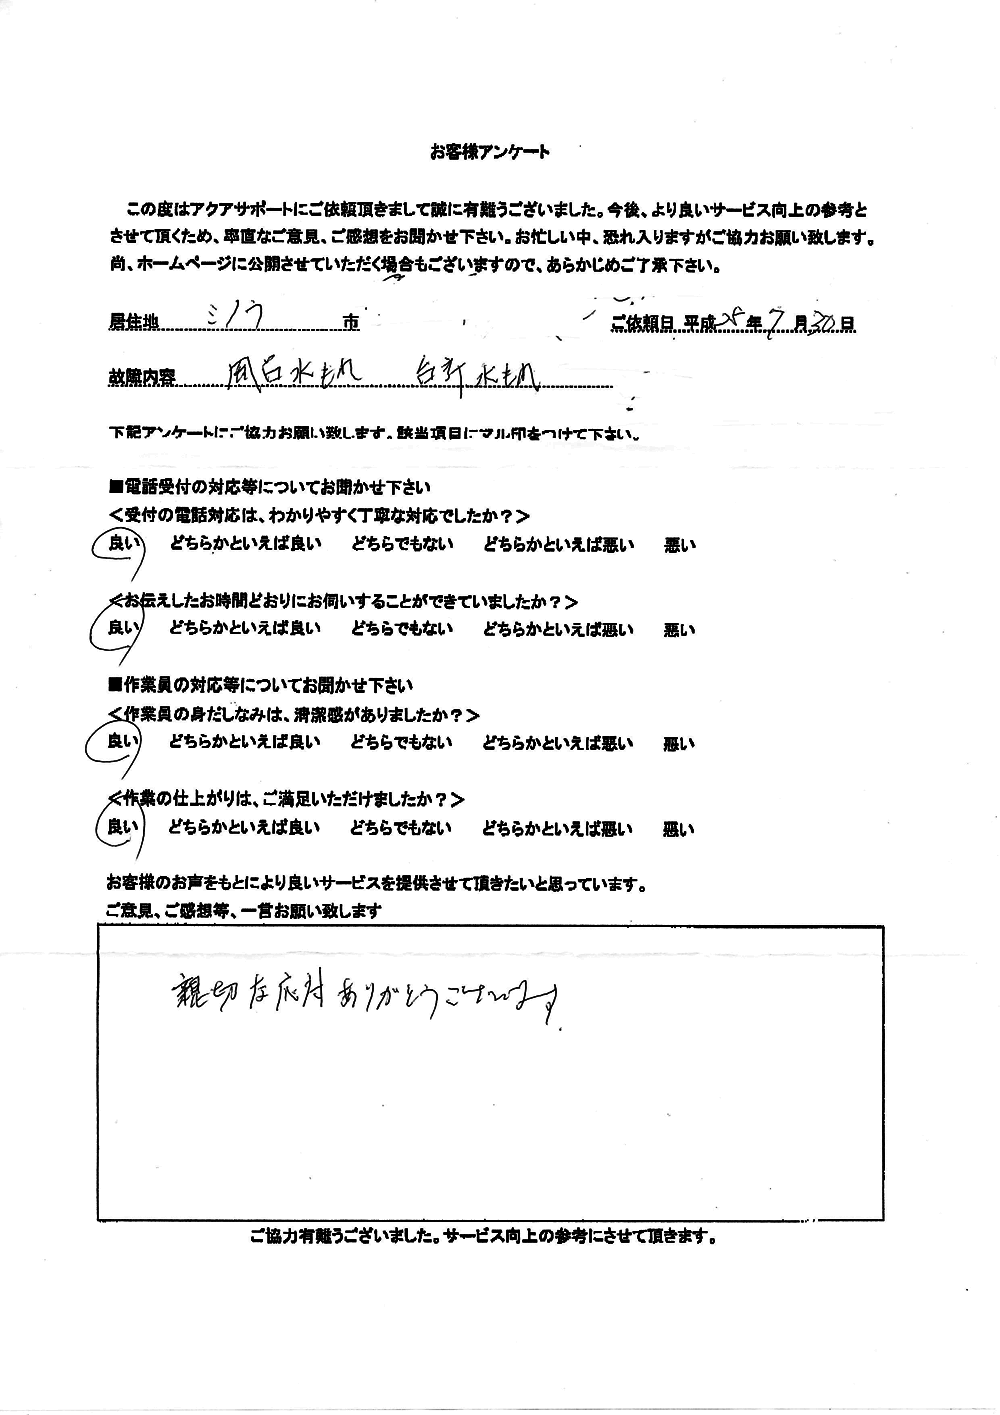 お客様アンケート
この度はアクアサポートにご依頼頂きまして誠に有難うございました。今後、より良いサービス向上の参考と
させて頂くため、率直なご意見、ご感想をお聞かせ下さい。お忙しい中、恐れ入りますがご協力お願い致します。
尚、ホームページに公開させていただく場合もございますので、あらかじめご了承下さい。
居住地 ミノウ 市 ご依頼日 平成28年7月30日
故障内容 風呂水もれ 台所水もれ
下記アンケートにご協力お願い致します。該当項目にマル印をつけて下さい。
■電話受付の対応等についてお聞かせ下さい
＜受付の電話対応は、わかりやすく丁寧な対応でしたか？＞
良い どちらかといえば良い どちらでもない どちらかといえば悪い 悪い
＜お伝えしたお時間どおりにお伺いすることができていましたか？＞
良い どちらかといえば良い どちらでもない どちらかといえば悪い 悪い
■作業員の対応等についてお聞かせ下さい
＜作業員の身だしなみは、清潔感がありましたか？＞
良い どちらかといえば良い どちらでもない どちらかといえば悪い 悪い
＜作業の仕上がりは、ご満足いただけましたか？＞
良い どちらかといえば良い どちらでもない どちらかといえば悪い 悪い
お客様のお声をもとにより良いサービスを提供させて頂きたいと思っています。
ご意見、ご感想等、一言お願い致します
親切な応対ありがとうございます.
ご協力有難うございました。サービス向上の参考にさせて頂きます。